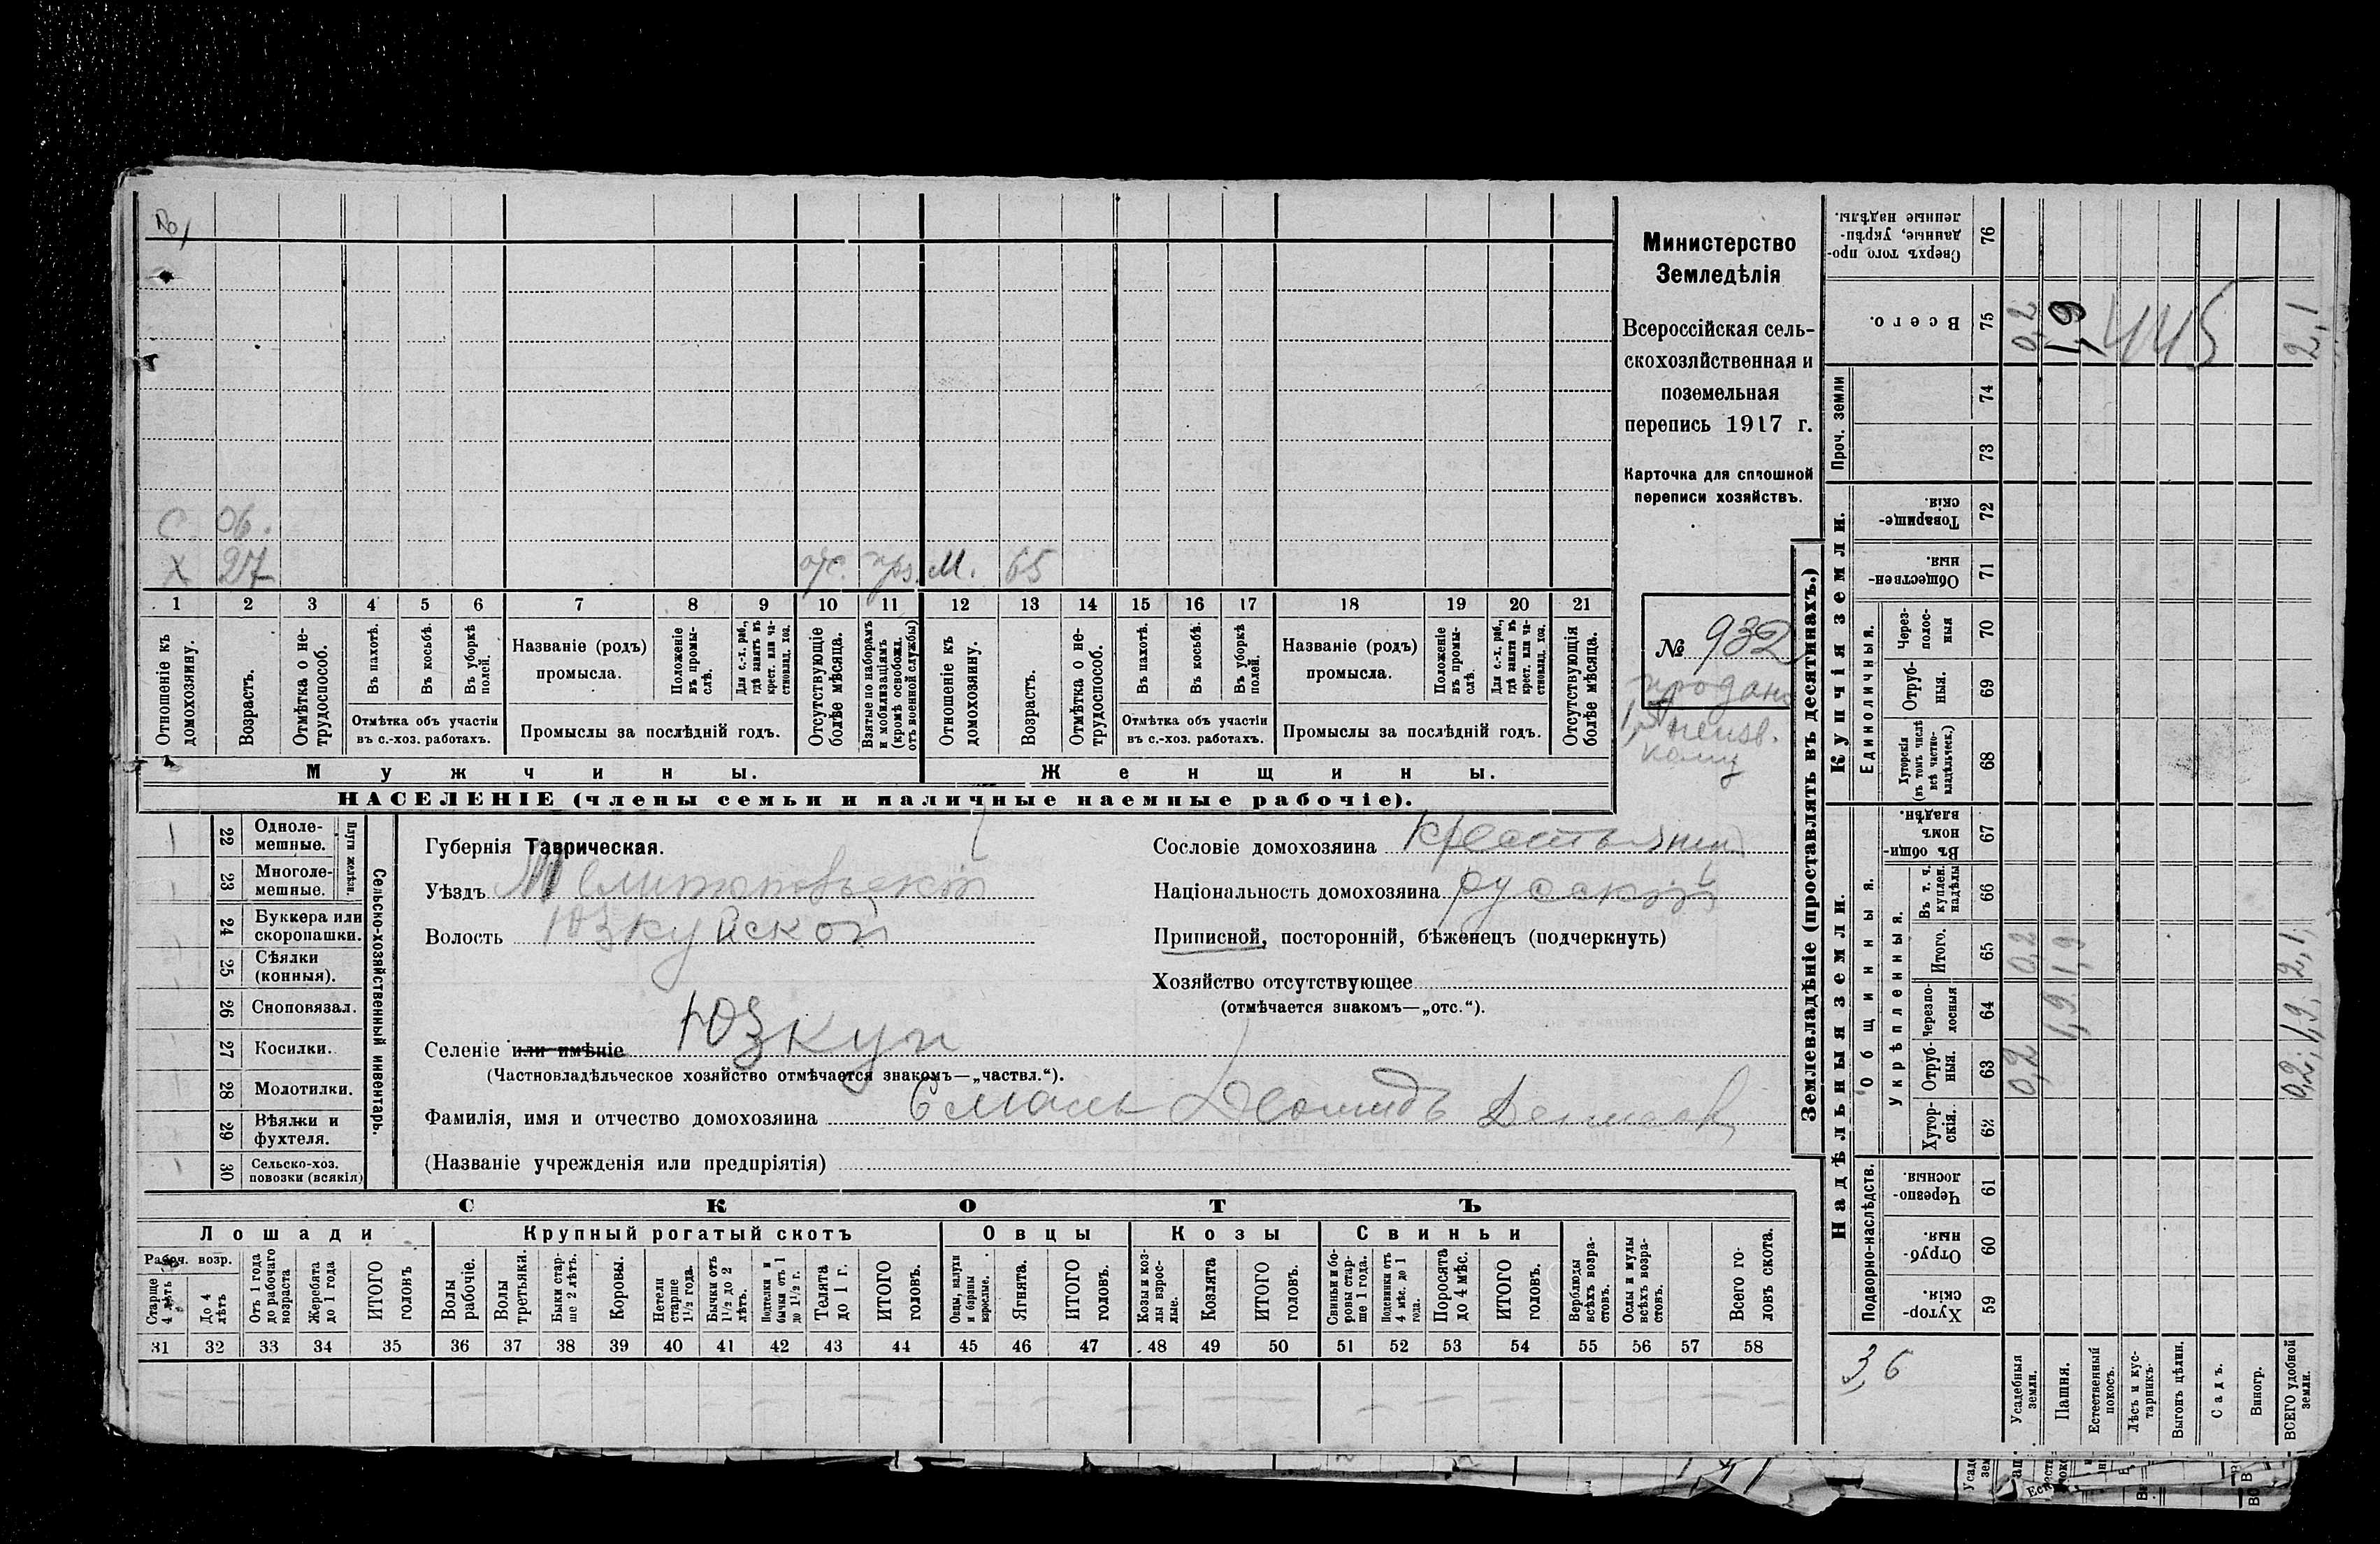 № 1
С. об.
Х 27 отс. прз. М. 65
1 2 3 4 5 6 7 8 9 10 11 12 13 14 15 16 17 18 19 20 21
Отношеніе къ домохозяину.
Возрастъ.
Отмѣтка о нетрудоспособ.
Въ пахотѣ.
Въ косьбѣ.
Въ уборкѣ полей.
Отмѣтка объ участіи
въ с.-хоз. работахъ.
Названіе (родъ)
промысла.
Положеніе въ промыслѣ.
Для с.-х. раб., гдѣ занятъ въ крест. или частновлад. хоз.
Промыслы за послѣдній годъ.
Отсутствующіе болѣе мѣсяца.
Взятые по наборамъ и мобилизаціямъ (кромѣ освобожд. отъ военной службы)
Отношеніе къ домохозяину.
Возрастъ.
Отмѣтка о нетрудоспособ.
Въ пахотѣ.
Въ косьбѣ.
Въ уборкѣ полей.
Отмѣтка объ участіи
въ с.-хоз. работахъ.
Названіе (родъ)
промысла.
Положеніе въ промыслѣ.
Для с.-х. раб., гдѣ занята въ крест. или частновлад. хоз.
Промыслы за послѣдній годъ.
Отсутствующія болѣе мѣсяца.
Мужчины.
Женщины.
НАСЕЛЕНІЕ (члены семьи и наличные наемные рабочіе).
Министерство
Земледѣлія
Всероссійская сель-
скохозяйственная и
поземельная
перепись 1917 г.
Карточка для сплошной
переписи хозяйствъ.
№ 932
продано
неизв.
кому
22 Однолемешные.
23 Многолемешные.
Плуги желѣзн.
24 Буккера или скоропашки.
25 Сѣялки (конныя).
26 Сноповязал.
27 Косилки.
28 Молотилки.
29 Вѣялки и фухтеля.
30 Сельско-хоз. повозки (всякія)
Сельско-хозяйственный инвентарь.
Губернія Таврическая.
Уѣздъ Мелитопольскій
Волость Юзкуйской
Селеніе или имѣніе Юзкуи
(Частновладѣльческое хозяйство отмѣчается знакомъ—„частвл.“).
Фамилія, имя и отчество домохозяина
(Названіе учрежденія или предпріятія)
Сословіе домохозяина крестьянин
Національность домохозяина русскій
Приписной, посторонній, бѣженецъ (подчеркнуть)
Хозяйство отсутствующее
(отмѣчается знакомъ—„отс.“).
СКОТЪ
Лошади
Крупный рогатый скотъ
Овцы
Козы
Свиньи
Рабоч. возр.
Старше 4 лѣтъ
До 4 лѣтъ
Отъ 1 года до рабочаго возраста
Жеребята до 1 года
ИТОГО головъ
Волы рабочіе.
Волы третьяки.
Быки старше 2 лѣтъ.
Коровы.
Нетели старше 1½ года.
Бычки отъ 1½ до 2 лѣтъ.
Подтелки и бычки отъ 1 до 1½ г.
Телята до 1 г.
ИТОГО головъ.
Овцы, валухи и бараны взрослые.
Ягнята.
ИТОГО головъ.
Козы и козлы взрослые.
Козлята
ИТОГО головъ.
Свиньи и боровы старше 1 года.
Подсвинки отъ 4 мѣс. до 1 года.
Поросята до 4 мѣс.
ИТОГО головъ.
Верблюды всѣхъ возрастовъ.
Ослы и мулы всѣхъ возрастовъ.
Всего головъ скота.
31 32 33 34 35 36 37 38 39 40 41 42 43 44 45 46 47 48 49 50 51 52 53 54 55 56 57 58
Землевладѣніе (проставлять въ десятинахъ.)
Надѣльныя земли.
Купчія земли.
Проч. земли
Подворно-наслѣдств.
Общинныя.
Укрѣпленныя.
Единоличныя.
Хуторскія. 59
Отрубныя. 60
Черезполосныя 61
Хуторскія. 62
Отрубныя. 63 0,2
Черезполосныя 64 1,9
Итого. 65 0,2 1,9 2,1
Въ т. ч. куплен. надѣлы 66
Въ общинномъ владѣн. 67
Хуторскія (въ томъ числѣ всѣ частновладѣльческ.) 68
Отрубныя. 69
Черезполосныя 70
Общественныя. 71
Товарищескія. 72
73
74
Всего. 75 0,2 1,9 445 2,1
Сверхъ того проданные, укрѣпленные надѣлы. 76
3,6
Усадебныя земли.
Пашня.
Естественный покосъ.
Лѣсъ и кустарникъ.
Выгонъ цѣлин.
Садъ.
Виногр.
ВСЕГО удобной земли.